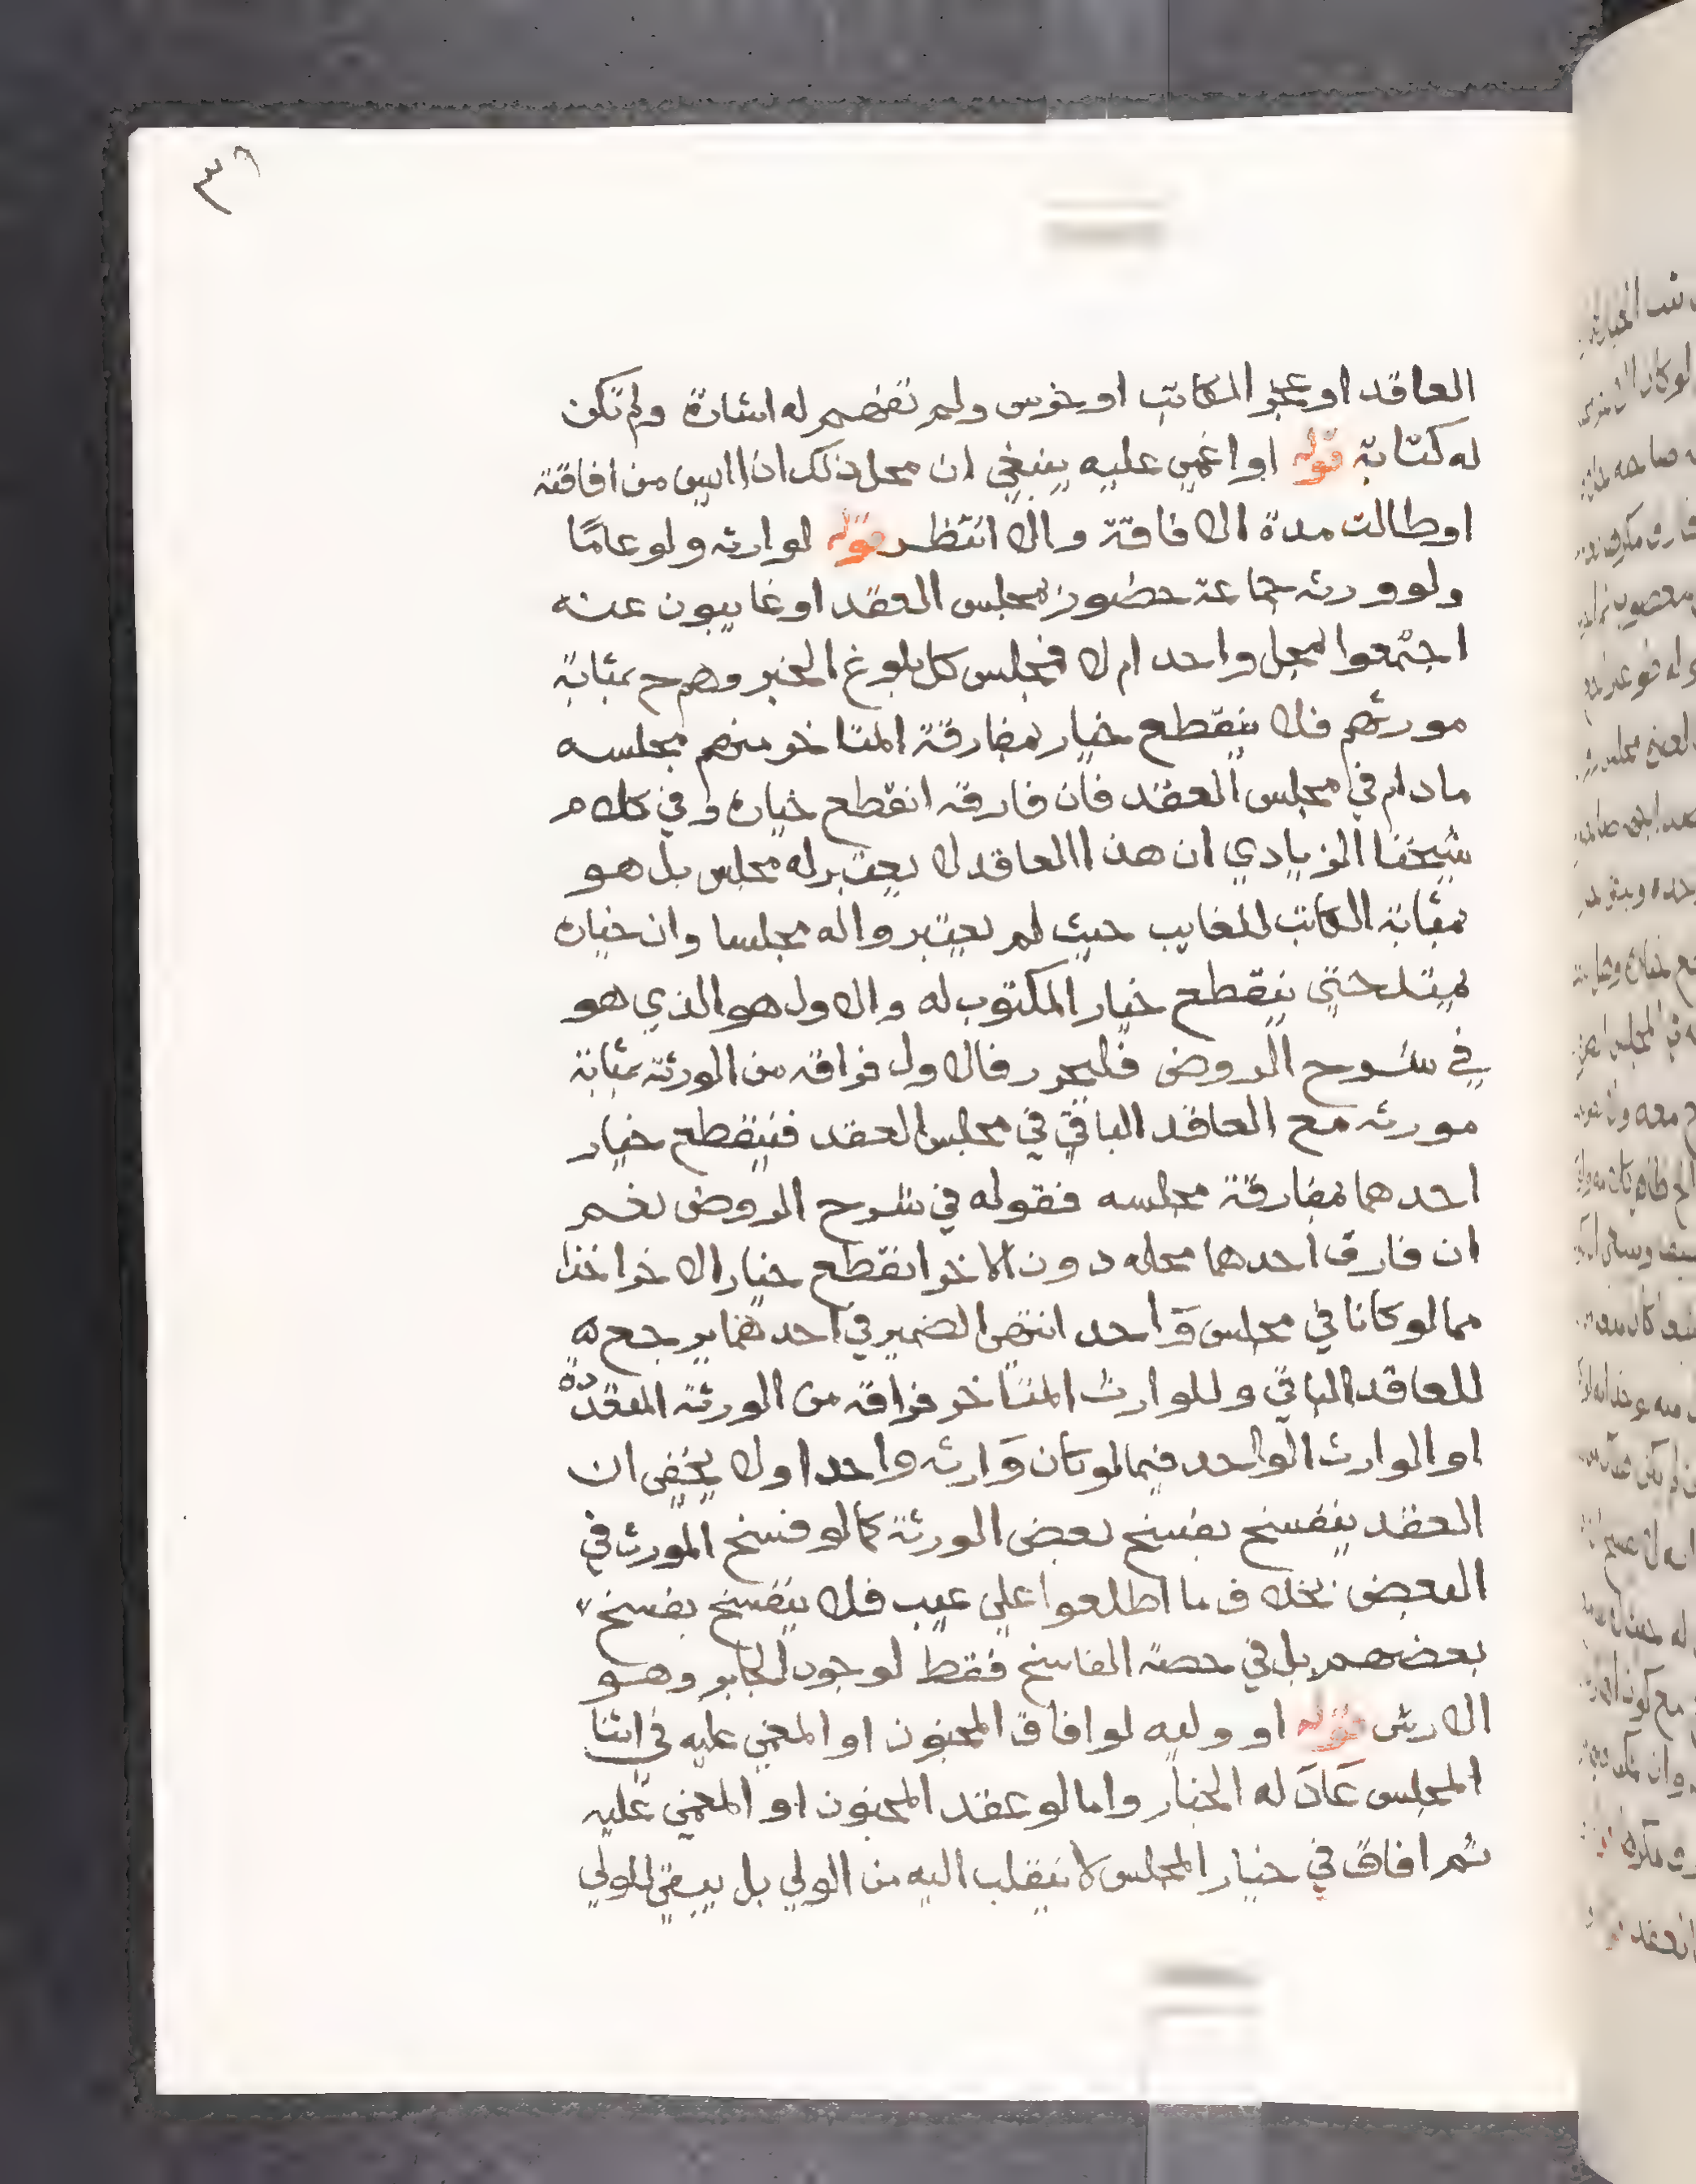 ٣٩
العاقد او عجز المكاتب او خرس ولم تفهم له اشارة ولم تكن
له كتابة قوله او اغمي عليه ينبغي ان محل ذلك اذا ايس من افاقته
او طالت مدة الافاقة والا انتظر قوله لوارثه ولو عامًا
ولو ورثه جماعة حضور بمجلس العقد او غايبون عنه
اجتمعوا بمحل واحد ام لا فمجلس كل بلوغ الخبر وهم ح بمثابة
مورثهم فلا ينقطع خيار بمفارقة المتاخر منهم مجلسه
مادام في مجلس العقد فان فارقه انقطع خياره وفي كلام
شيخنا الزيادي ان هذا العاقد لا يعتبر له مجلس بل هو
بمثابة الكاتب للغايب حيث لم يعتبروا له مجلسا وان خياره
يمتد حتي ينقطع خيار المكتوب له والاول هو الذي هو
في شرح الروض فليحرر فالاول فراقه من الورثة بمثابة
مورثه مع العاقد الباقي في مجلس العقد فينقطع خيار
احدهما بمفارقة مجلسه فقوله في شرح الروض نعم
ان فارق احدهما محله دون الاخر انقطع خيار الاخر اخذا
مما لو كانا في مجلس وَاحد انتهى الضمير في احدهما يرجع ه
للعاقد الباقي وللوارث المتاخر فراقه من الورثة المتعددة
او الوارث الواحد فيما لو كان وَارثه واحدا ولا يخفى ان
العقد ينفسخ بفسخ بعض الورثة كما لو فسخ المورث في
البعض بخلاف ما اطلعوا علي عيب فلا ينفسخ بفسخ
بعضهم بل في حصة الفاسخ فقط لوجود الجابر وهو
الارش قوله او وليه لو افاق المجنون او المغمي عليه في اثنا
المجلس عَادَ له الخيار واما لو عقد المجنون او المغمي عليه
ثم افاق في خيار المجلس لا ينقلب اليه من الولي بل يبقي للولي